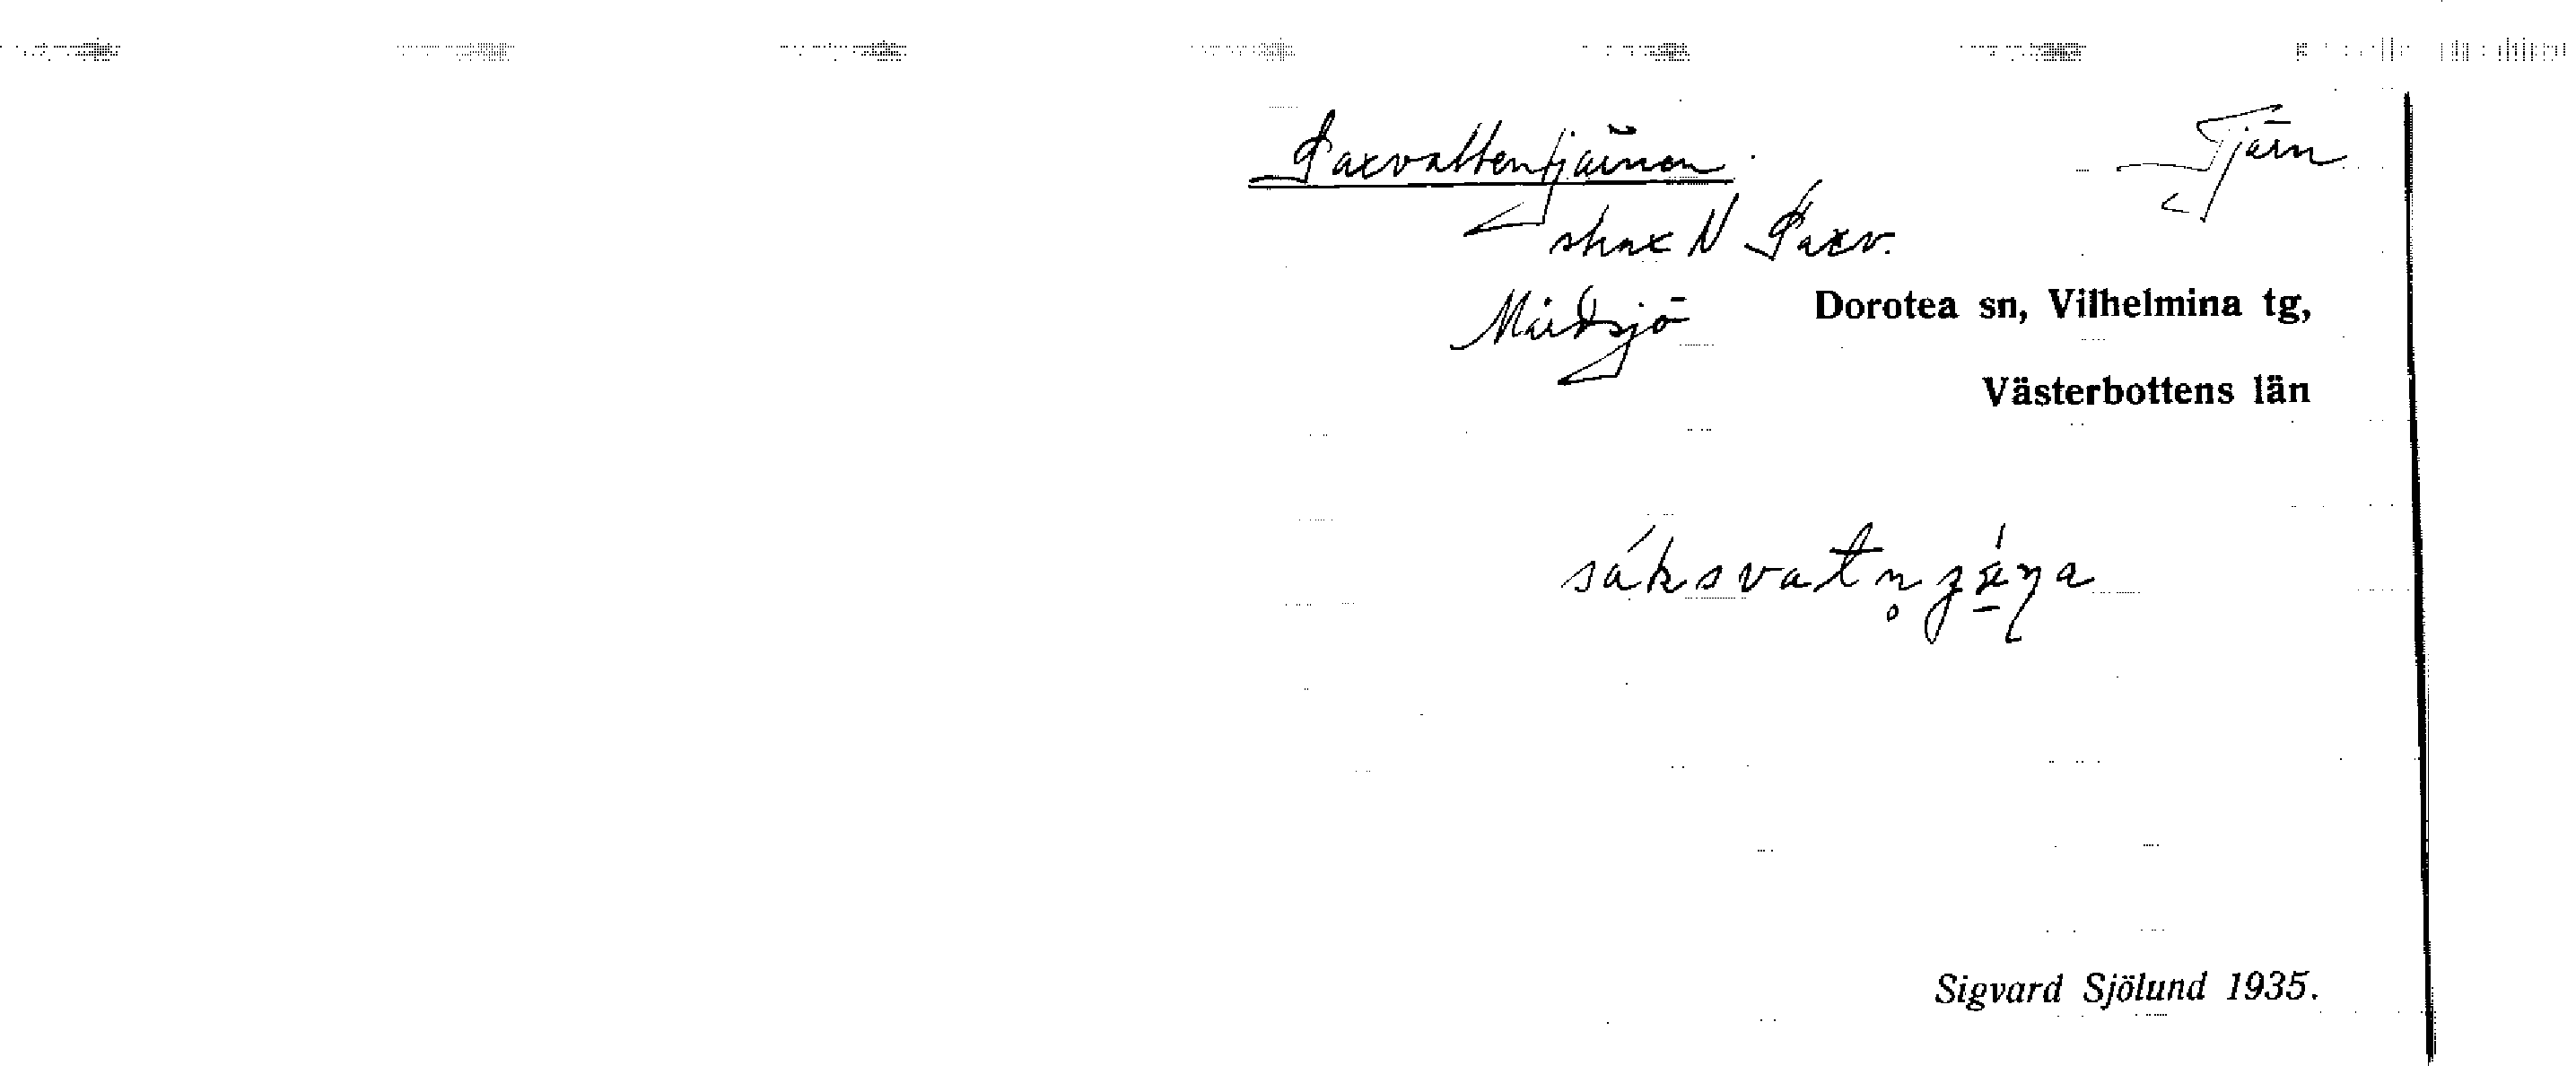 Saxvattentjärnen Tjärn
strax N Saxv.
Mårdsjö Dorotea sn, Vilhelmina tg,
Västerbottens län
Sigvard Sjölund 1935.